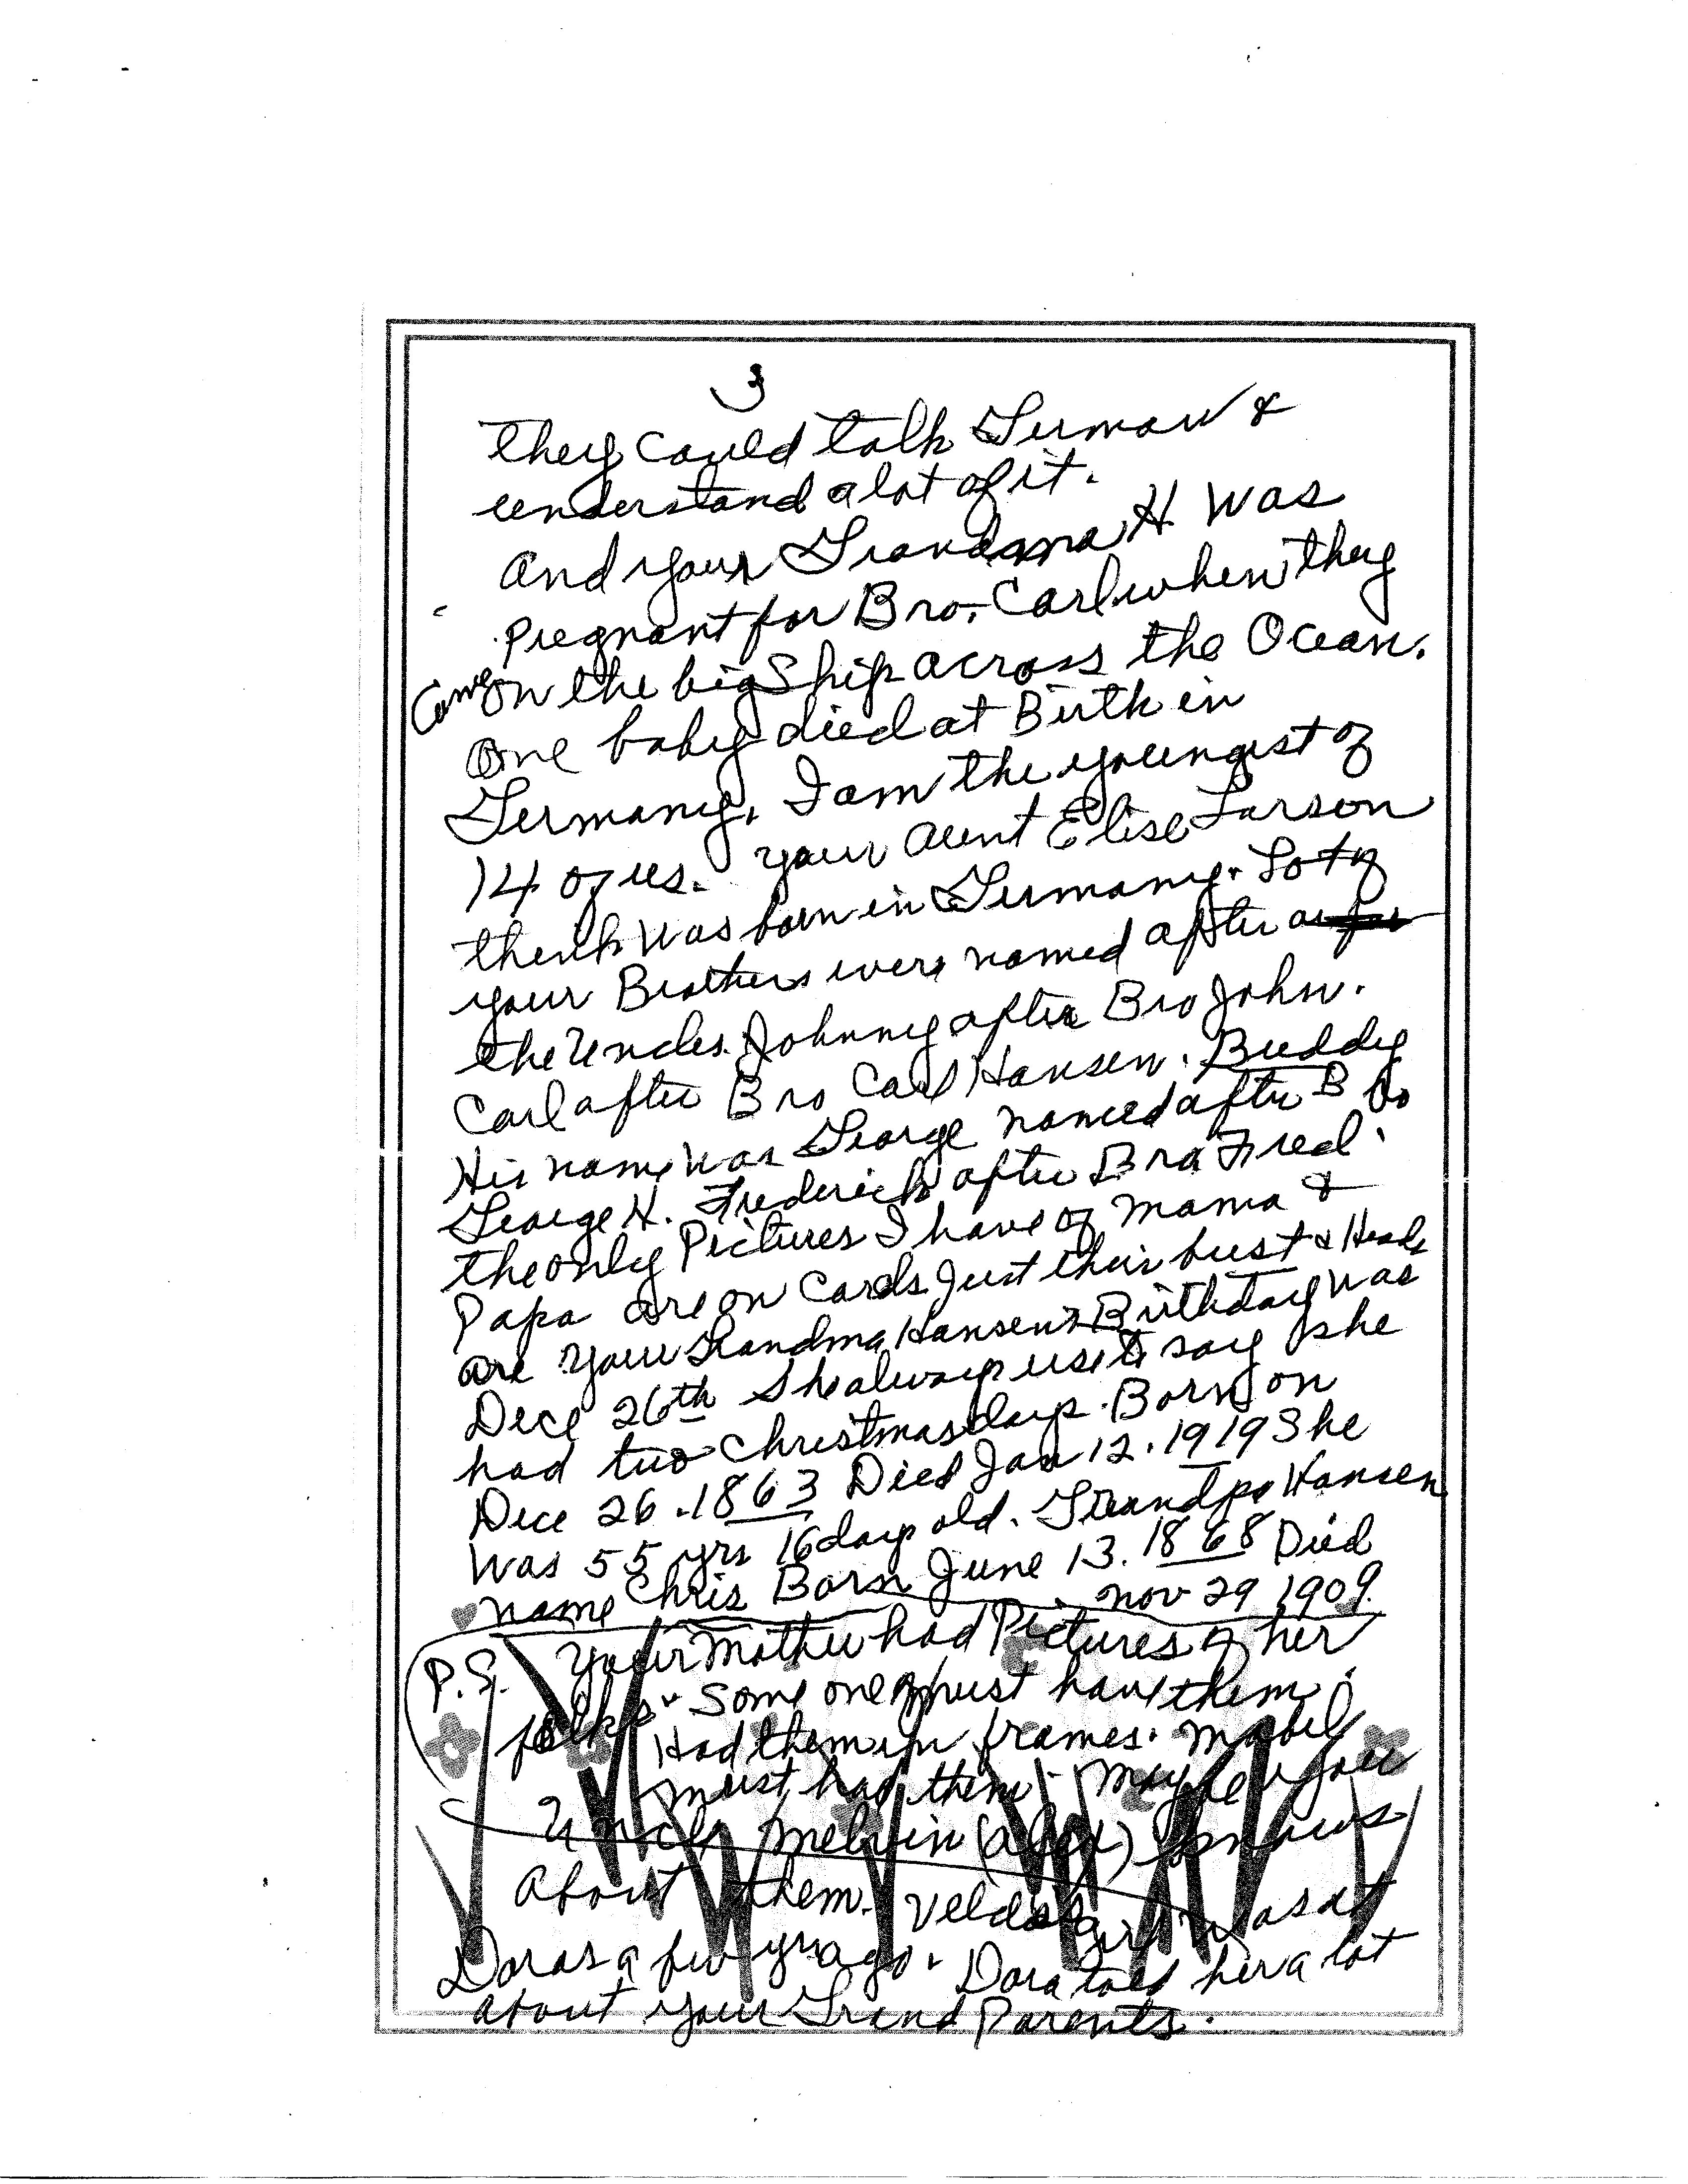 3
they could talk German &
understand a lot of it.
And your Grandma H was
Pregnant for Bro. Carl when they
Came on the big Ship across the Ocean.
One baby died at Birth in
Germany. I am the youngest of
14 of us. your Aunt Elise Larson
think was born in Germany. Lot of
your Brothers were named after
the Uncles. Johnny after Bro John.
Carl after Bro Carl Hansen. Buddy
His name was George named after Bro
George H. Frederick after Bro Fred.
the only Pictures I have of mama &
Papa are on cards Just their bust & Heads
are your Grandma Hansen's Birthday was
Dece 26th She always use to say she
had two Christmas days. Born on
Dece 26. 1863 Died Jan 12. 1919 She
was 55 yrs 16 days old. Grandpa Hansen
name Chris Born June 13. 1868 Died
Nov 29 1909.
P.S. Your Mother had Pictures of her
folks. Some one must have them.
Had them in frames. Mabel
must had them. Maybe your
Uncle Melvin (Alex) knows
about them. Veldas girl was at
Doras a few yrs ago. Dora told her a lot
about your Grand Parents.